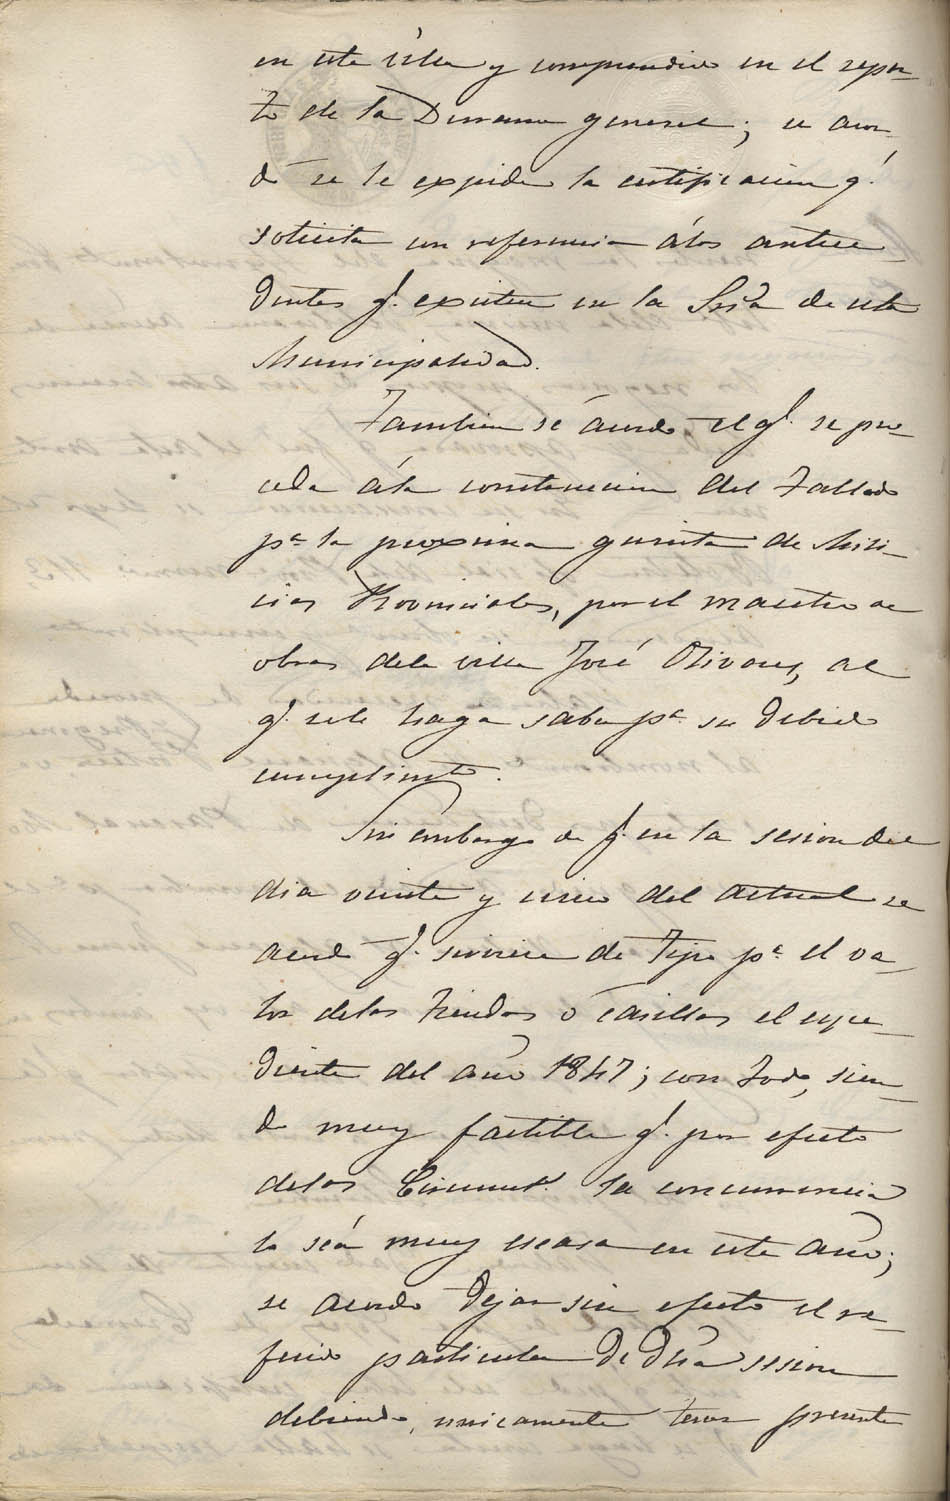 en esta villa y comprendido en el repar-
to de la Derrama general; se acor-
dó se le expida la certificacion q.e
solicita con referencia á los antece
dentes q.e existen en la Sria de esta
Municipalidad.
Tambien se acordó el q.e se pro-
ceda á la construccion del Tallado
p.a la proxima quinta de Mili-
cias Provinciales, por el maestro de
obras de la villa José Olivares, al
q.e se le haga saber p.a su debido
cumplim.to
Sin embargo de q.e en la sesion del
dia veinte y cinco del actual se
acordó q.e sirviese de tipo p.a el va-
lor de las tiendas ó casillas el espe-
diente del año 1847; con todo, sien-
do muy factible q.e por efecto
de las Circunst.s la concurrencia
lo seá muy escasa en este año;
se acordó dejar sin efecto el re-
ferido particular de dha sesion
debiendo unicamente tener presente